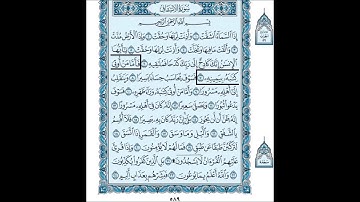 سورة الانشقاق
بسم الله الرحمن الرحيم
إذا السماء انشقت ١ وأذنت لربها وحقت ٢ وإذا الأرض مدت
٣ وألقت ما فيها وتخلت ٤ وأذنت لربها وحقت ٥ يا أيها
الإنسان إنك كادح إلى ربك كدحا فملاقيه ٦ فأما من أوتي
كتابه بيمينه ٧ فسوف يحاسب حسابا يسيرا ٨ وينقلب
إلى أهله مسرورا ٩ وأما من أوتي كتابه وراء ظهره ١٠ فسوف
يدعو ثبورا ١١ ويصلى سعيرا ١٢ إنه كان في أهله مسرورا ١٣
إنه ظن أن لن يحور ١٤ بلى إن ربه كان به بصيرا ١٥ فلا أقسم
بالشفق ١٦ والليل وما وسق ١٧ والقمر إذا اتسق ١٨
لتركبن طبقا عن طبق ١٩ فما لهم لا يؤمنون ٢٠ وإذا قرئ
عليهم القرآن لا يسجدون ۩ ٢١ بل الذين كفروا يكذبون
٢٢ والله أعلم بما يوعون ٢٣ فبشرهم بعذاب أليم ٢٤
٥٨٩